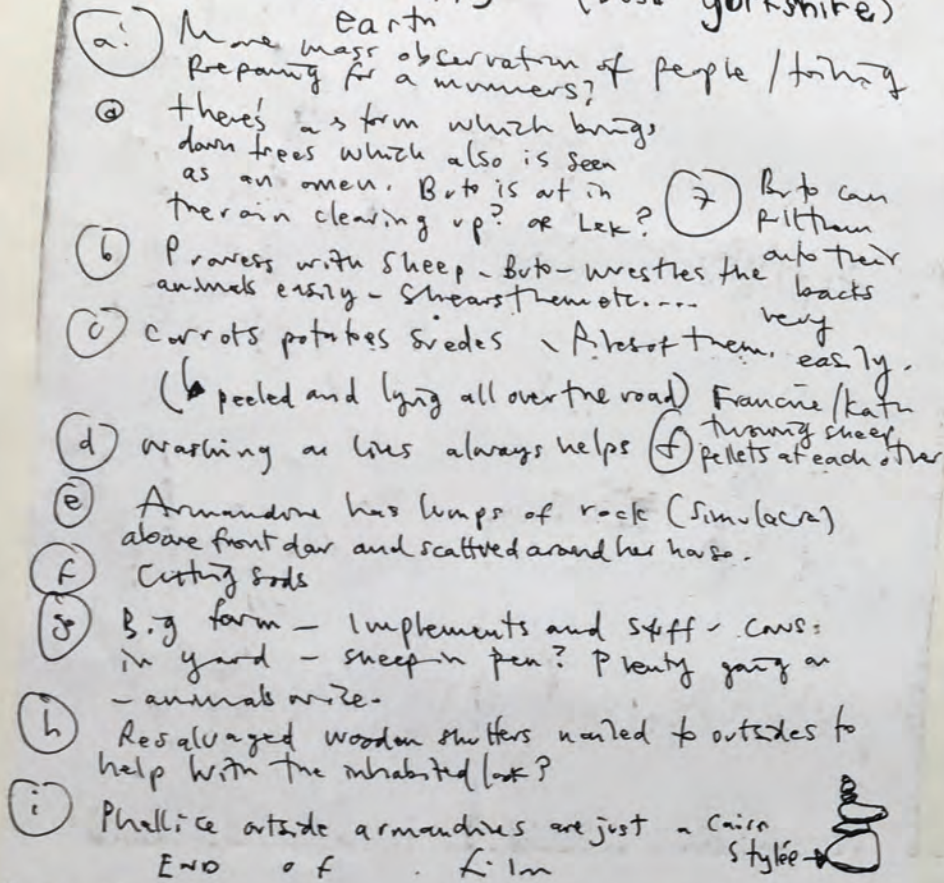 (West Yorkshire)
earth
a! More mass observation of people / toiling
preparing for a mummers?
a there's a storm which brings
down trees which also is seen
as an omen. Buto is out in
the rain clearing up? or Lek?
7 Buto can
pull them
onto their
backs
very
easily.
b Prowess with sheep - Buto - wrestles the
animals easily - shears them etc....
c Carrots potatoes swedes \ Piles of them.
(↳ peeled and lying all over the road)
Francine / Kath
throwing sheep
f pellets at each other
d washing on lines always helps
e Armandine has lumps of rock (simulacra)
above front door and scattred around her house.
f Cutting sods
g Big farm - Implements and stuff - cows:
in yard - sheep in pen? Plenty going on
- animals wize.
h Resalvaged wooden shutters nailed to outsides to
help with the inhabited look?
i Phallice outside armandines are just a cairn
stylée →
END of . film